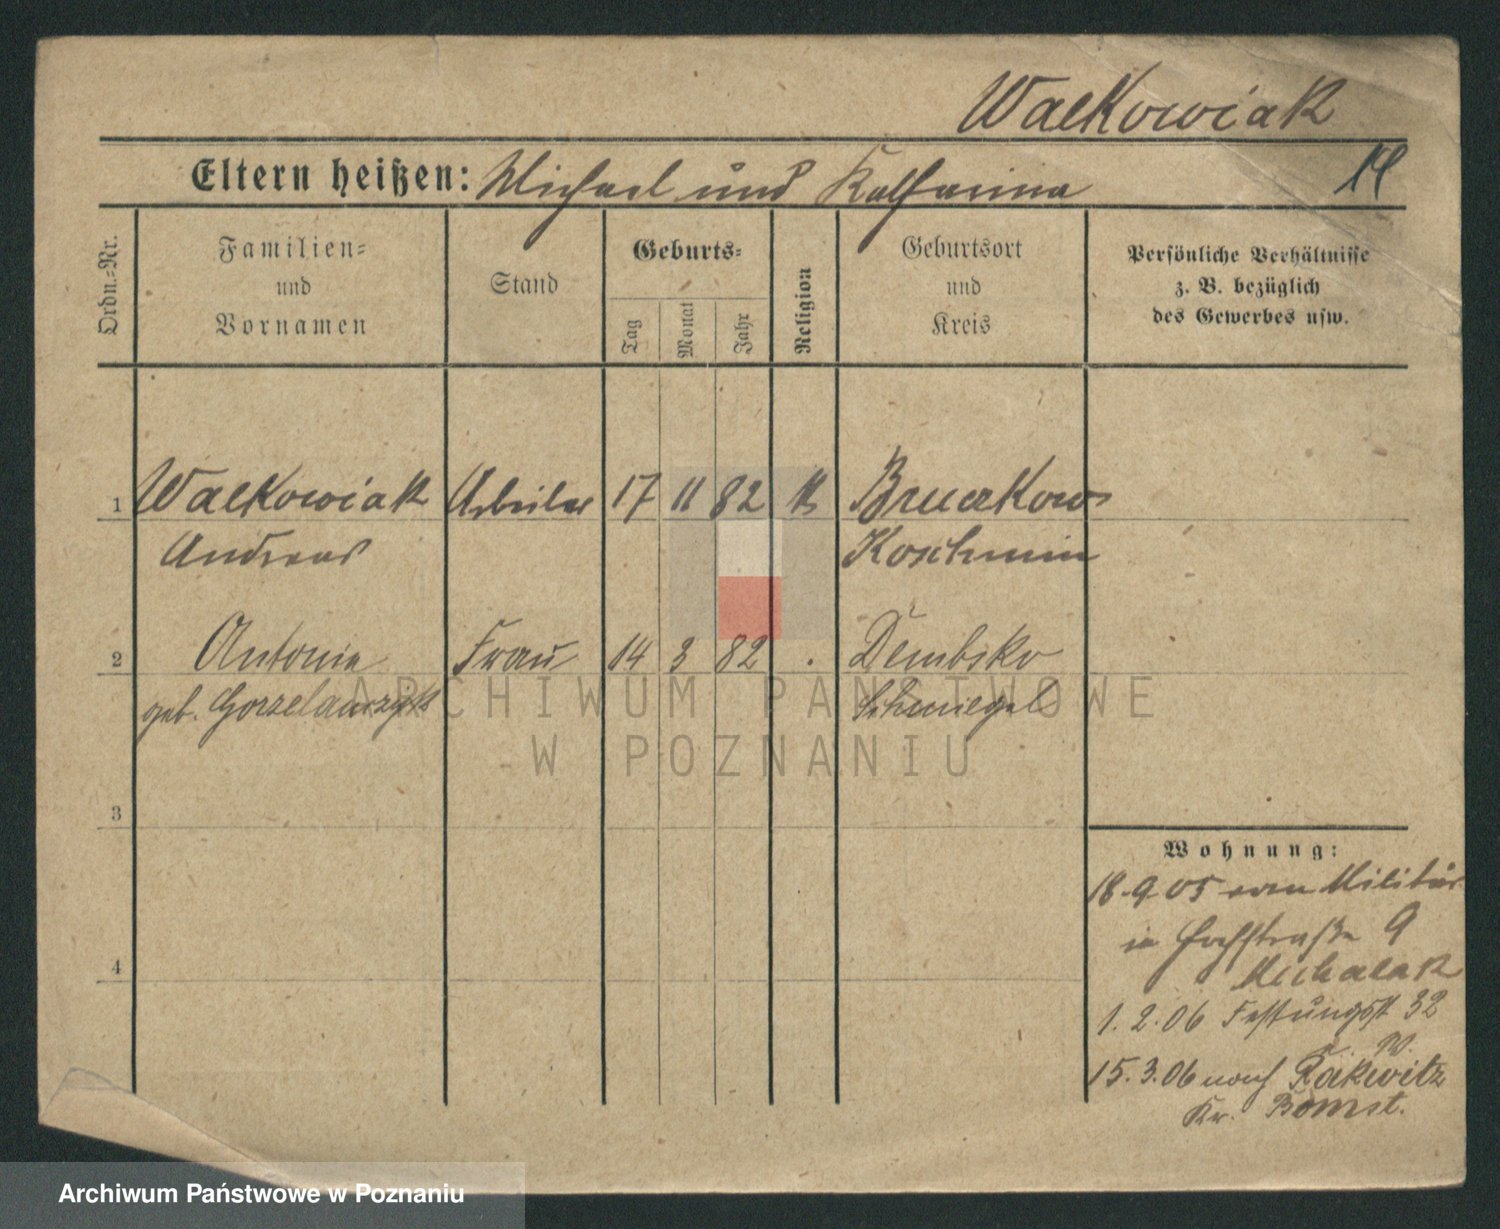 Walkowiak
Eltern heißen: Michael und Katharina
14
Ordn.-Nr.
Familien-
und
Vornamen
Stand
Geburts-
Tag
Monat
Jahr
Religion
Geburtsort
und
Kreis
Persönliche Verhältnisse
z. B. bezüglich
des Gewerbes usw.
1 Walkowiak Arbeiter 17 11 82 k
Andreas Koschmin
2 Antonie Frau 14 3 82 Dembsko
geb. Gorzelanczyk Schmiegel
ARCHIWUM PAŃSTWOWE
W POZNANIU
3
4
Wohnung:
18.9 05 vom Militär
in Hochstraße 9
Michalak
1. 2. 06 Festungsst 32
15. 3. 06 nach Rakwitz
Kr. Bomst.
Archiwum Państwowe w Poznaniu